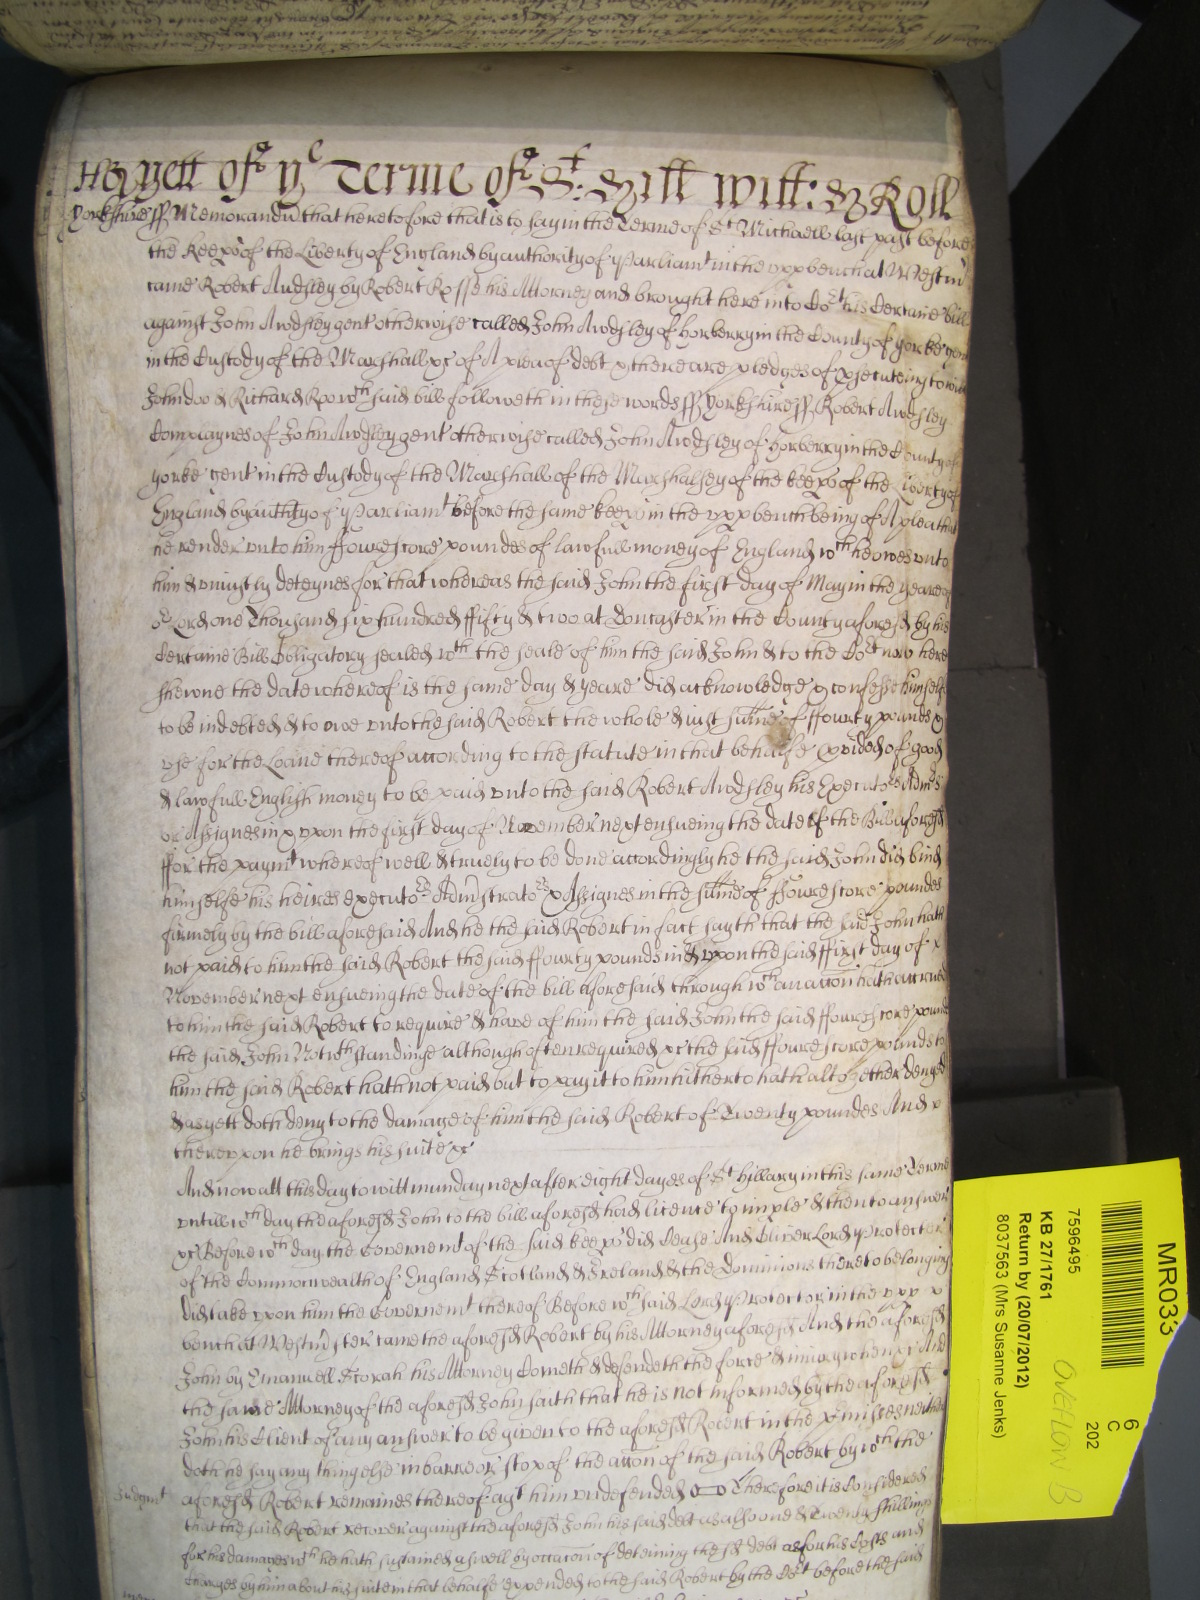 As yett of ye Terme of St: Hill Witt: By Roll
Yorkshire ss Memorandu that heretofore that is to say in the Terme of St Michaell last past before
the Keeps of the Liberty of England by authority of Parliamt in the uppbench at Westm
came Robert Awdsley by Robert Rosse his Attorney and brought here into Cot his Certaine bill
against John Awdsley gent otherwise called John Awdsley of Horberry in the County of Yorke gent
in the Custody of the Marshall &c of A plea of debt & there are pledges of psecuteing to witt
John doo & Richard Roo wch said bill followeth in these words ss Yorkshire ss Robert Awdsley
Complaynes of John Awdsley gent otherwise called John Awdsley of Horberry in the County of
Yorke gent in the Custody of the Marshall of the Marshalsey of the keeps of the Liberty of
England by authty of Parliamt before the same keeps in the uppbench being of A plea that
he render unto him ffourescore poundes of lawfull money of England wch he owes unto
him & uniustly deteynes for that whereas the said John the first day of May in the yeare of
or Lord one Thousand six hundred ffifty & two at Doncaster in the County aforesd by his
Certaine Bill Obligatory sealed wth the seale of him the said John & to the Cort now here
shewne the date whereof is the same day & yeare did acknowledge & confesse himselfe
to be indebted & to owe unto the said Robert the whole & iust sume of ffourty poundes &
use for the Loane thereof according to the statute in that behalfe pvided of good
& lawfull English money to be paid unto the said Robert Awdsley his Executors Admrs
or Assignes in & upon the first day of November next ensueing the date of the Bill aforesd
ffor the paymt whereof well & truely to be done accordingly he the said John did bind
himselfe his heires executors Adminstrators & Assignes in the sume of ffourescore poundes
firmely by the bill aforesaid And he the said Robert in fact sayth that the said John hath
not paid to him the said Robert the said ffourty pounds in & upon the said ffirst day of
November next ensueing the date of the bill aforesaid through wch an accon hath accrued
to him the said Robert to require & have of him the said John the said ffourescore pound
the said John Notwthstandinge although often required &c the said ffourescore pounds to
him the said Robert hath not paid but to pay it to him hitherto hath altogether denyed
& as yett doth deny to the damage of him the said Robert of Twenty poundes And
thereupon he brings his suite &c
And now att this day to witt munday next after eight dayes of St Hillary in this same Terme
untill wch day the aforesd John to the bill aforesd had licence to imple & then to answer
&c Before wch day the Governemt of the said keeps did Cease And Oliver Lord Protector
of the Commonwealth of England Scotland & Ireland & the dominions thereto belonging
did take upon him the Governemt thereof Before wch said Lord Protector in the upp
bench at Westmster came the aforesd Robert by his Attorney aforesd And the aforesd
John by Emanuell Scorah his Attorney Cometh & defendeth the force & iniury when &c And
the same Attorney of the aforesd John saith that he is not informed by the aforesd
John his Client of any answer to be given to the aforesd Robert in the pmisses neither
doth he say any thing else in barre or stop of the accon of the said Robert by wch the
Judgmt
aforesd Robert remaines thereof agt him undefended Therefore it is Considered
that the said Robert recover against the aforesd John his said debt as alsoe one & Twenty shillings
for his damages wch he hath sustained aswell by occacon of deteining the sd debt as for his Costs and
Charges by him about his suite in that behalfe expended to the said Robert by the Cort before the said
MR033
6
C
202
7596495
KB 27/1761
Return by (20/07/2012)
8037563 (Mrs Susanne Jenks)
OVERFLOW B